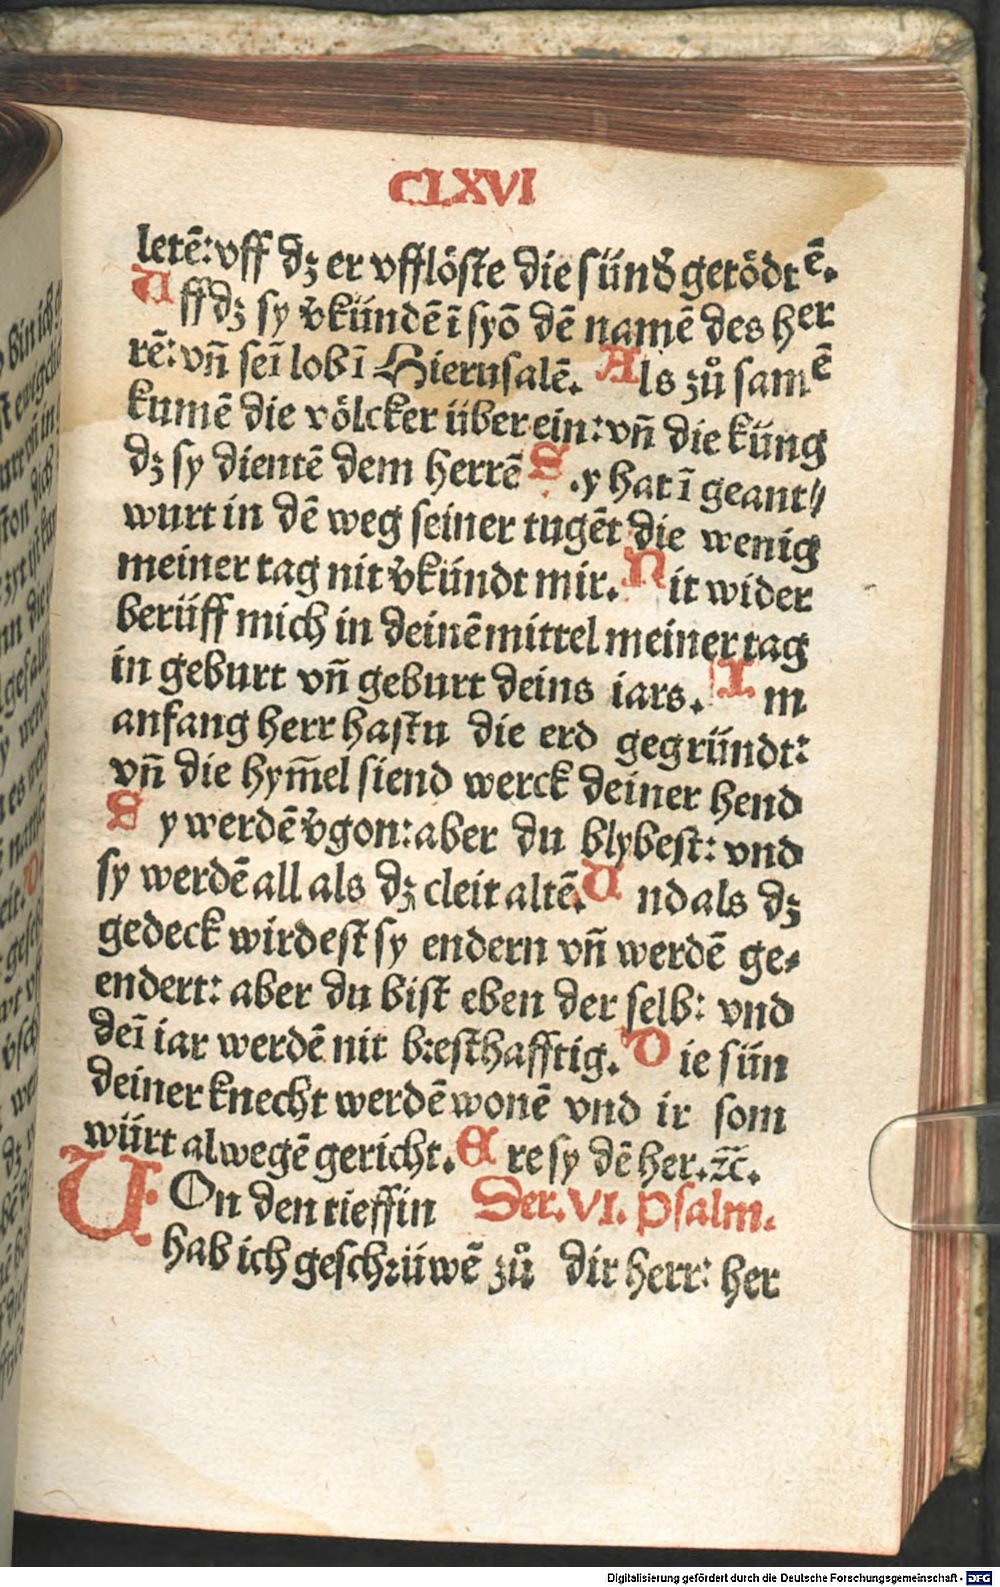 CLXVI
letē: vff dʒ er vfflöste die sünd̛ getödtē.
Vff dʒ sy v̛kündē ī syō dē namē des her
rē: vn̄ seī lob ī Hierusalē. Als zů samē
kumē die völcker über ein: vn̄ die küng
dʒ sy dientē dem herrē Sy hat ī geant⸗
wurt in dē weg seiner tugēt die wenig
meiner tag nit v̛kündt mir. Nit wider
berüff mich in deinē mittel meiner tag
in geburt vn̄ geburt deins iars. Im
anfang herr hastu die erd gegründt:
vn̄ die hym̄el siend werck deiner hend
Sy werdē v̛gon: aber du blybest: vnd
sy werdē all als dʒ cleit altē. Und als dʒ
gedeck wirdest sy endern vn̄ werdē ge⸗
endert: aber du bist eben der selb: vnd
deī iar werdē nit bresthafftig. Die sün
deiner knecht werdē wonē vnd ir som
würt alwegē gericht. Ere sy dē her. ꝛc̄.
VOn den tieffin Der. VI. Psalm.
hab ich geschrüwē zů dir herr: her
Digitalisierung gefördert durch die Deutsche Forschungsgemeinschaft - DFG